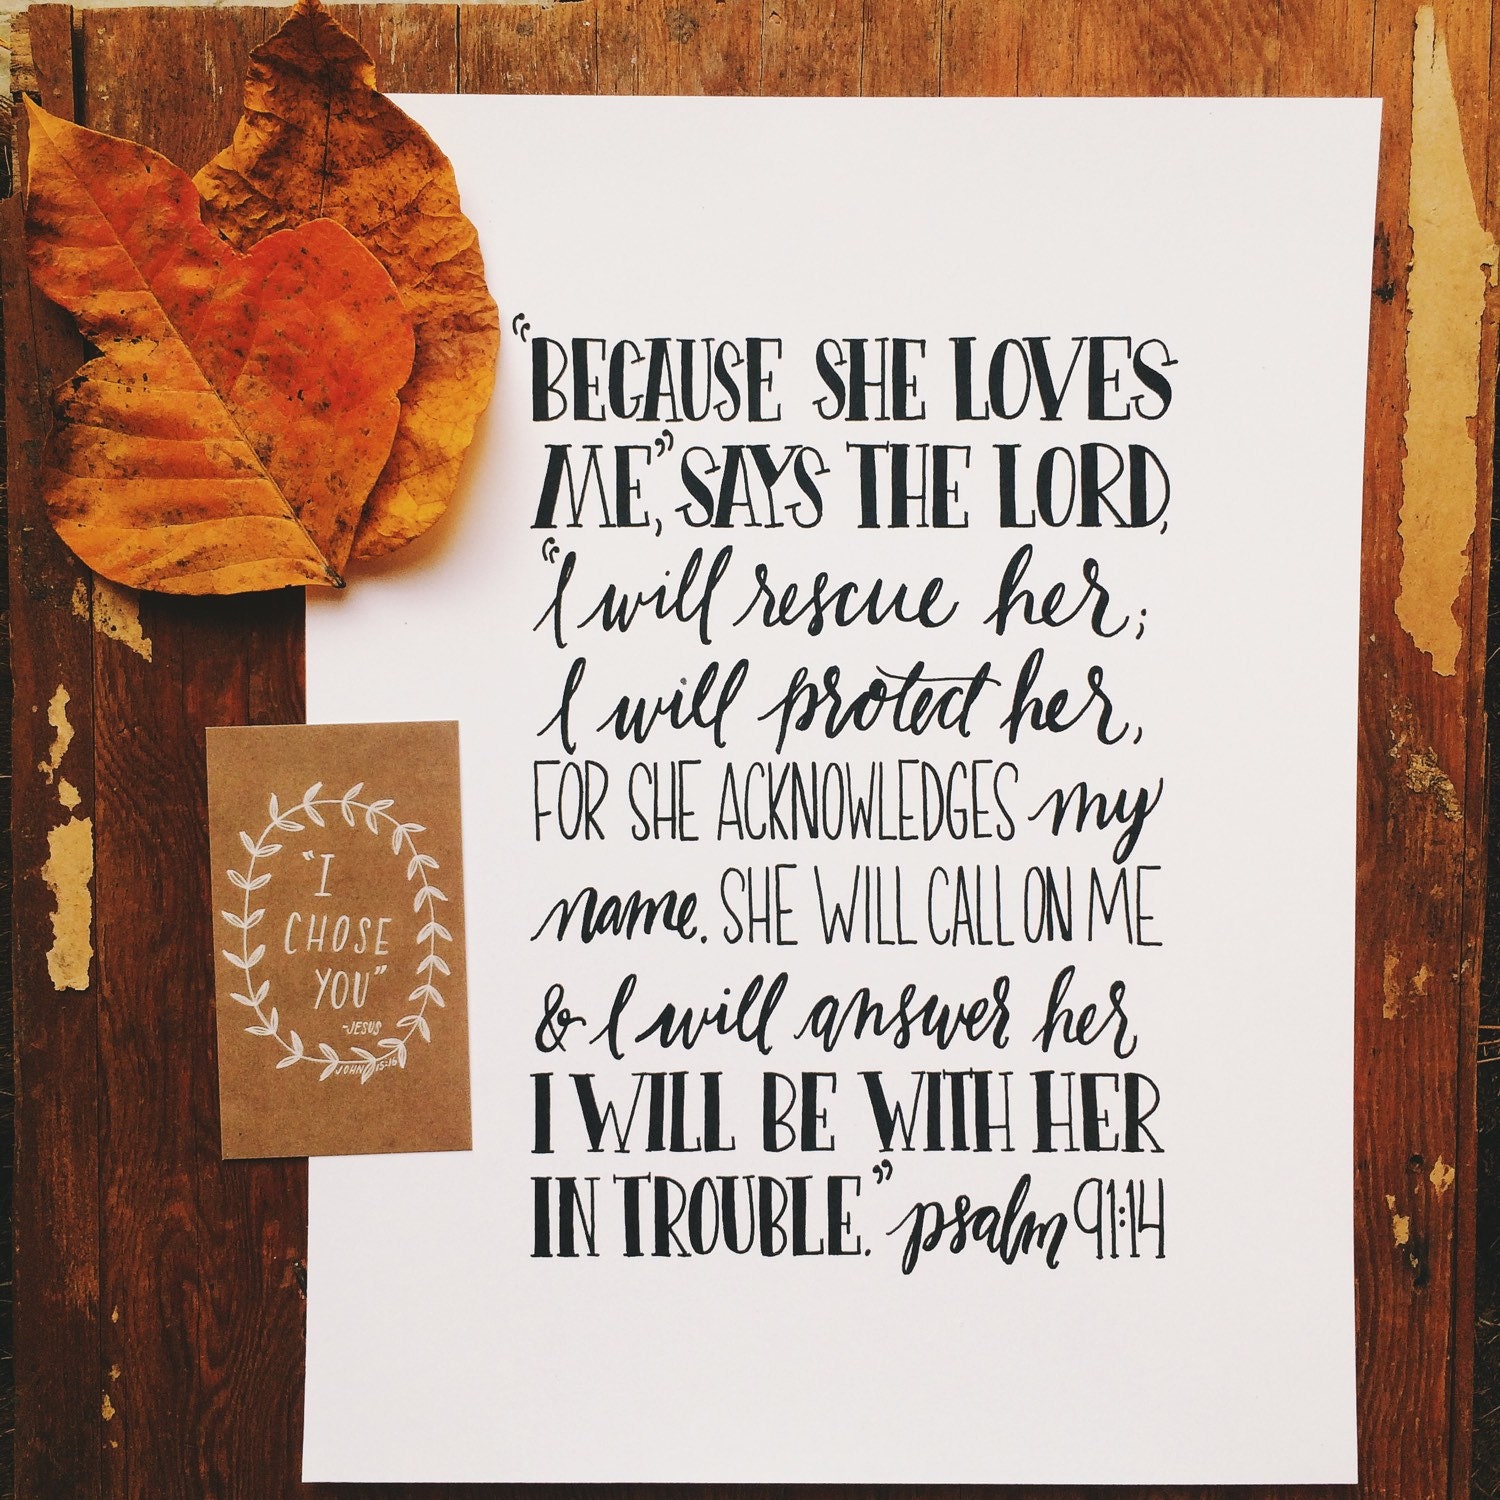 “BECAUSE SHE LOVES
ME,” SAYS THE LORD,
“I will rescue her;
I will protect her,
FOR SHE ACKNOWLEDGES my
name. SHE WILL CALL ON ME
& I will answer her
I WILL BE WITH HER
IN TROUBLE.” psalm 91:14
“I
CHOSE
YOU”
-JESUS
JOHN 15:16